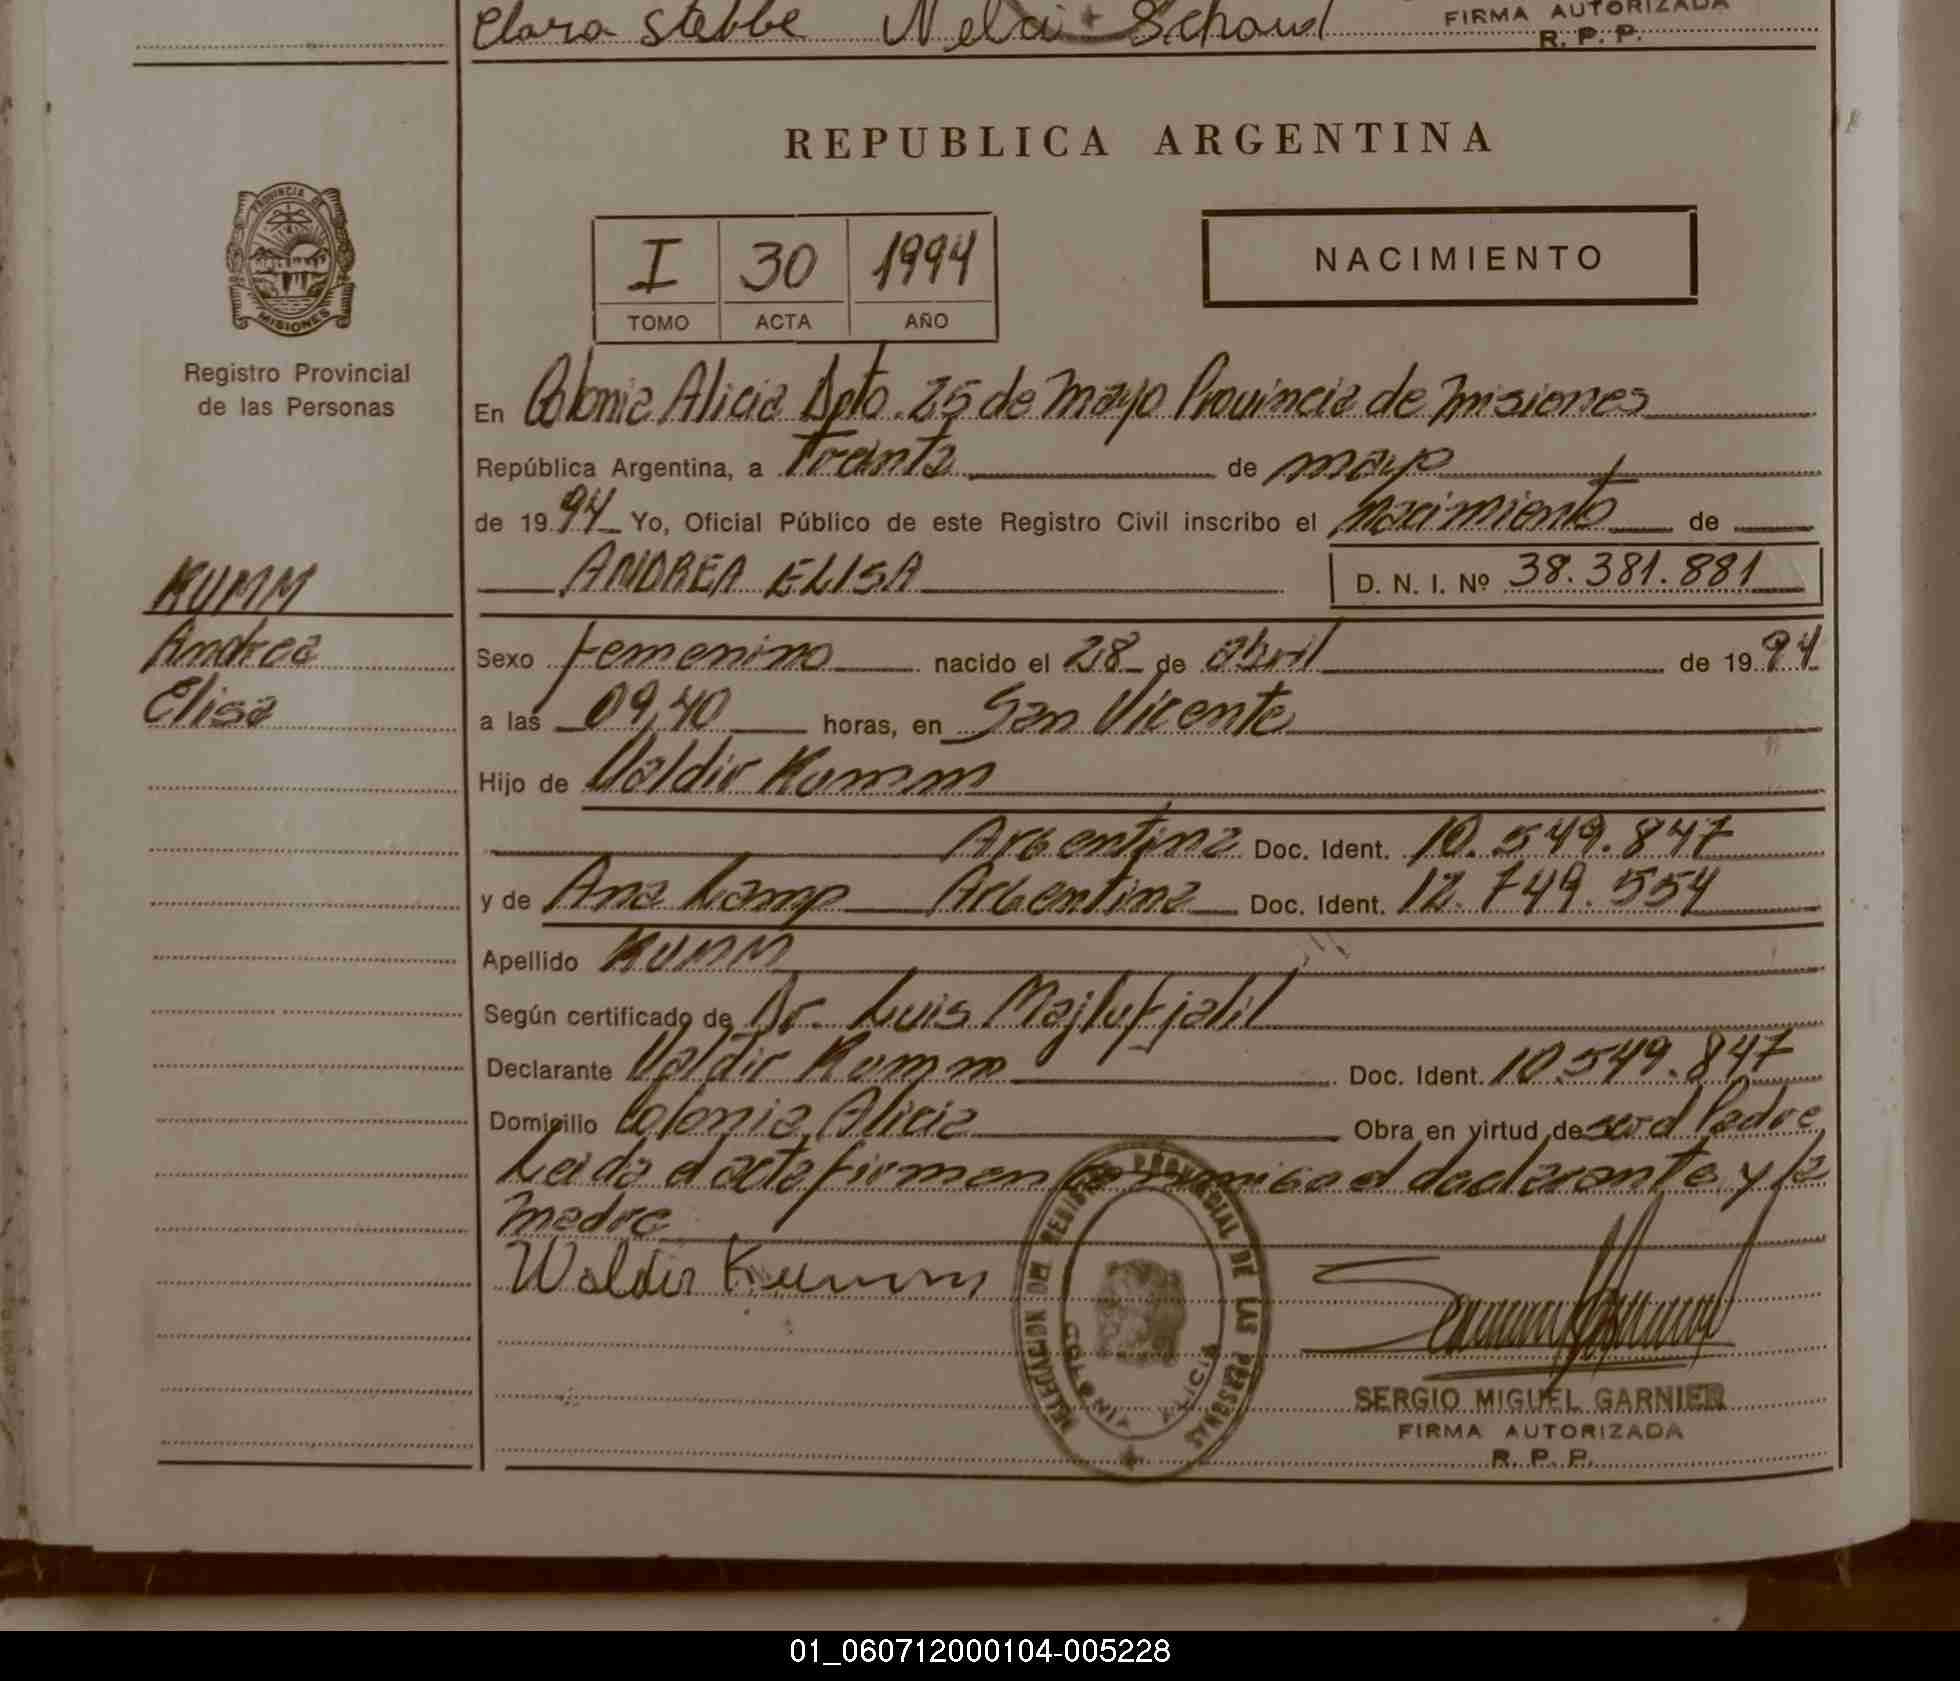 Clara Stebbe Nelci Schaurl
FIRMA AUTORIZADA
R. P. P.
REPUBLICA ARGENTINA
PROVINCIA DE
MISIONES
I 30 1994
TOMO ACTA AÑO
NACIMIENTO
Registro Provincial
de las Personas
En Colonia Alicia Dpto. 25 de Mayo Provincia de Misiones
República Argentina, a Treinta de mayo
de 1994 Yo, Oficial Público de este Registro Civil inscribo el Nacimiento de
ANDREA ELISA D. N. I. Nº 38.381.881
KUMM
Andrea
Elisa
Sexo femenino nacido el 28 de abril de 1994
a las 09,40 horas, en San Vicente
Hijo de Valdir Kumm
Argentina Doc. Ident. 10.549.847
y de Ana Kamp Argentina Doc. Ident. 12.749.554
Apellido KUMM
Según certificado de Dr. Luis Majluf jalil
Declarante Valdir Kumm Doc. Ident. 10.549.847
Domicilio Colonia Alicia Obra en virtud de ser el Padre
Leida el acta firman conmigo el declarante y la
madre
Waldir Kumm
DELEGACION DEL REGISTRO PROVINCIAL DE LAS PERSONAS
COLONIA ALICIA
SERGIO MIGUEL GARNIER
FIRMA AUTORIZADA
R. P. P.
01_060712000104-005228